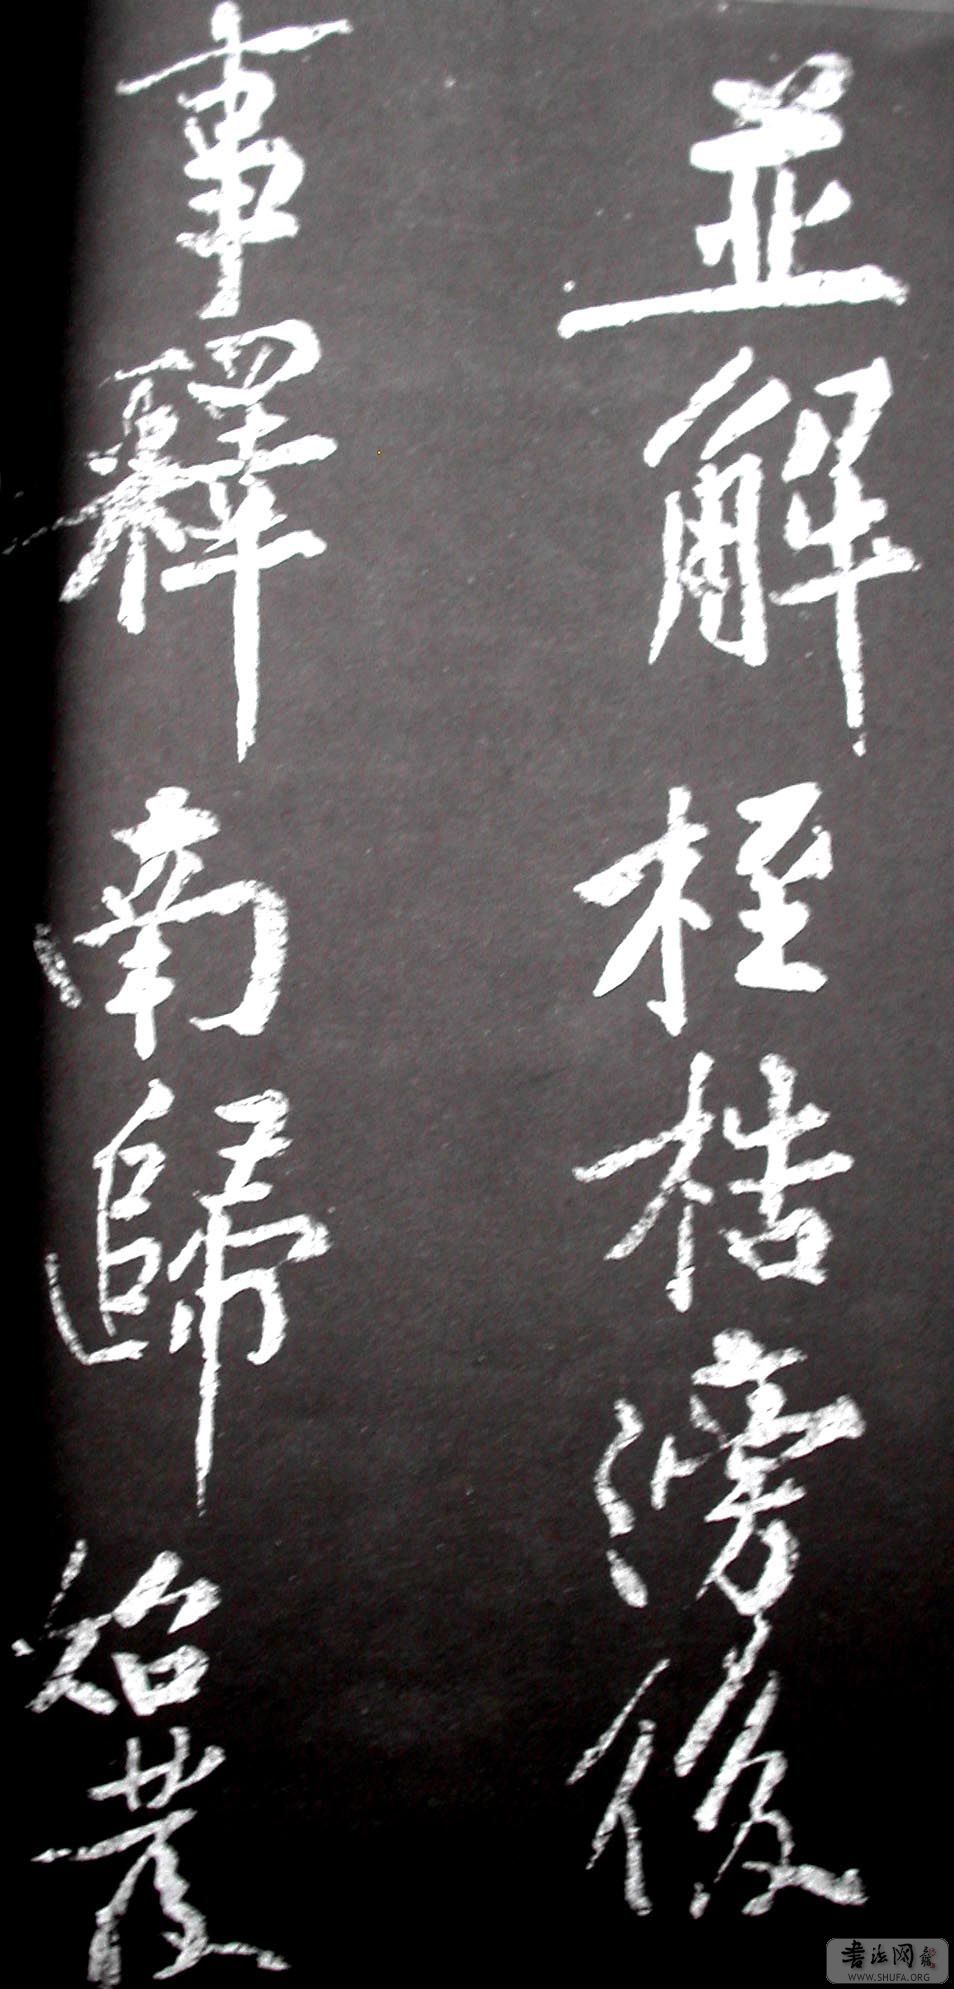 並解桎梏滂後
事釋南歸始發
書法网
WWW.SHUFA.ORG